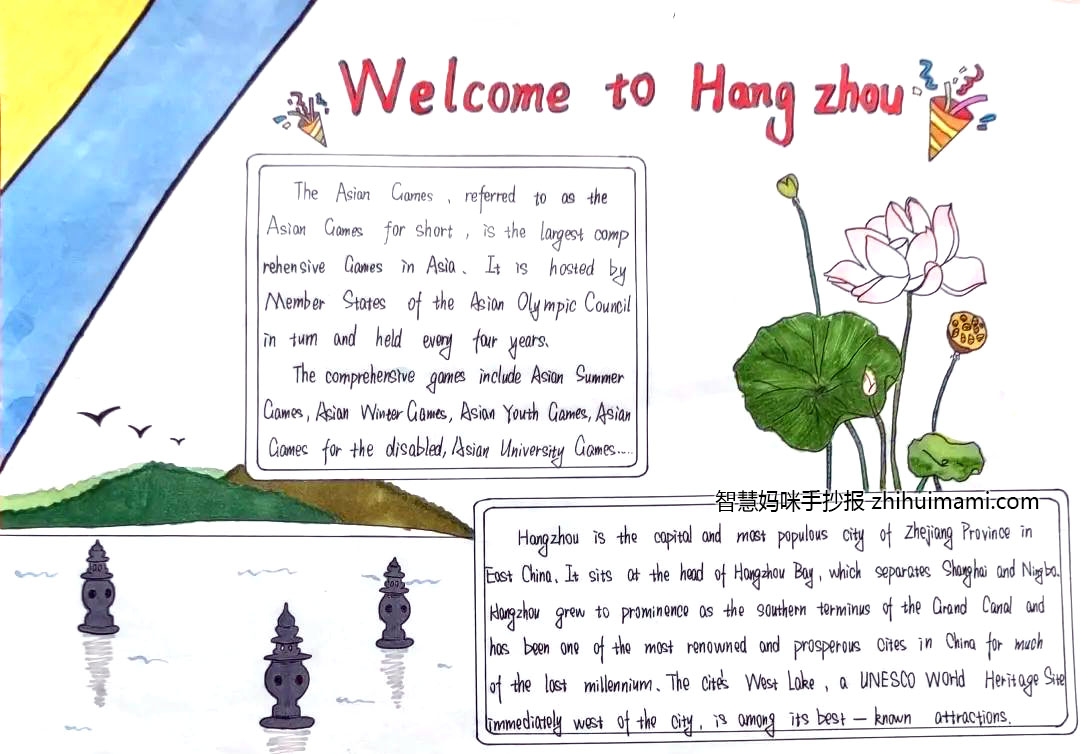 Welcome to Hangzhou
The Asian Games, referred to as the
Asian Games for short, is the largest comp
rehensive Games in Asia. It is hosted by
Member States of the Asian Olympic Council
in turn and held every four years.
The comprehensive games include Asian Summer
Games, Asian Winter Games, Asian Youth Games, Asian
Games for the disabled, Asian University Games.....
智慧妈咪手抄报 zhihuimami.com
Hangzhou is the capital and most populous city of Zhejiang Province in
East China. It sits at the head of Hangzhou Bay, which separates Shanghai and Ningbo.
Hangzhou grew to prominence as the southern terminus of the Grand Canal and
has been one of the most renowned and prosperous cites in China for much
of the last millennium. The cite's West Lake, a UNESCO World Heritage Site
immediately west of the city, is among its best-known attractions.